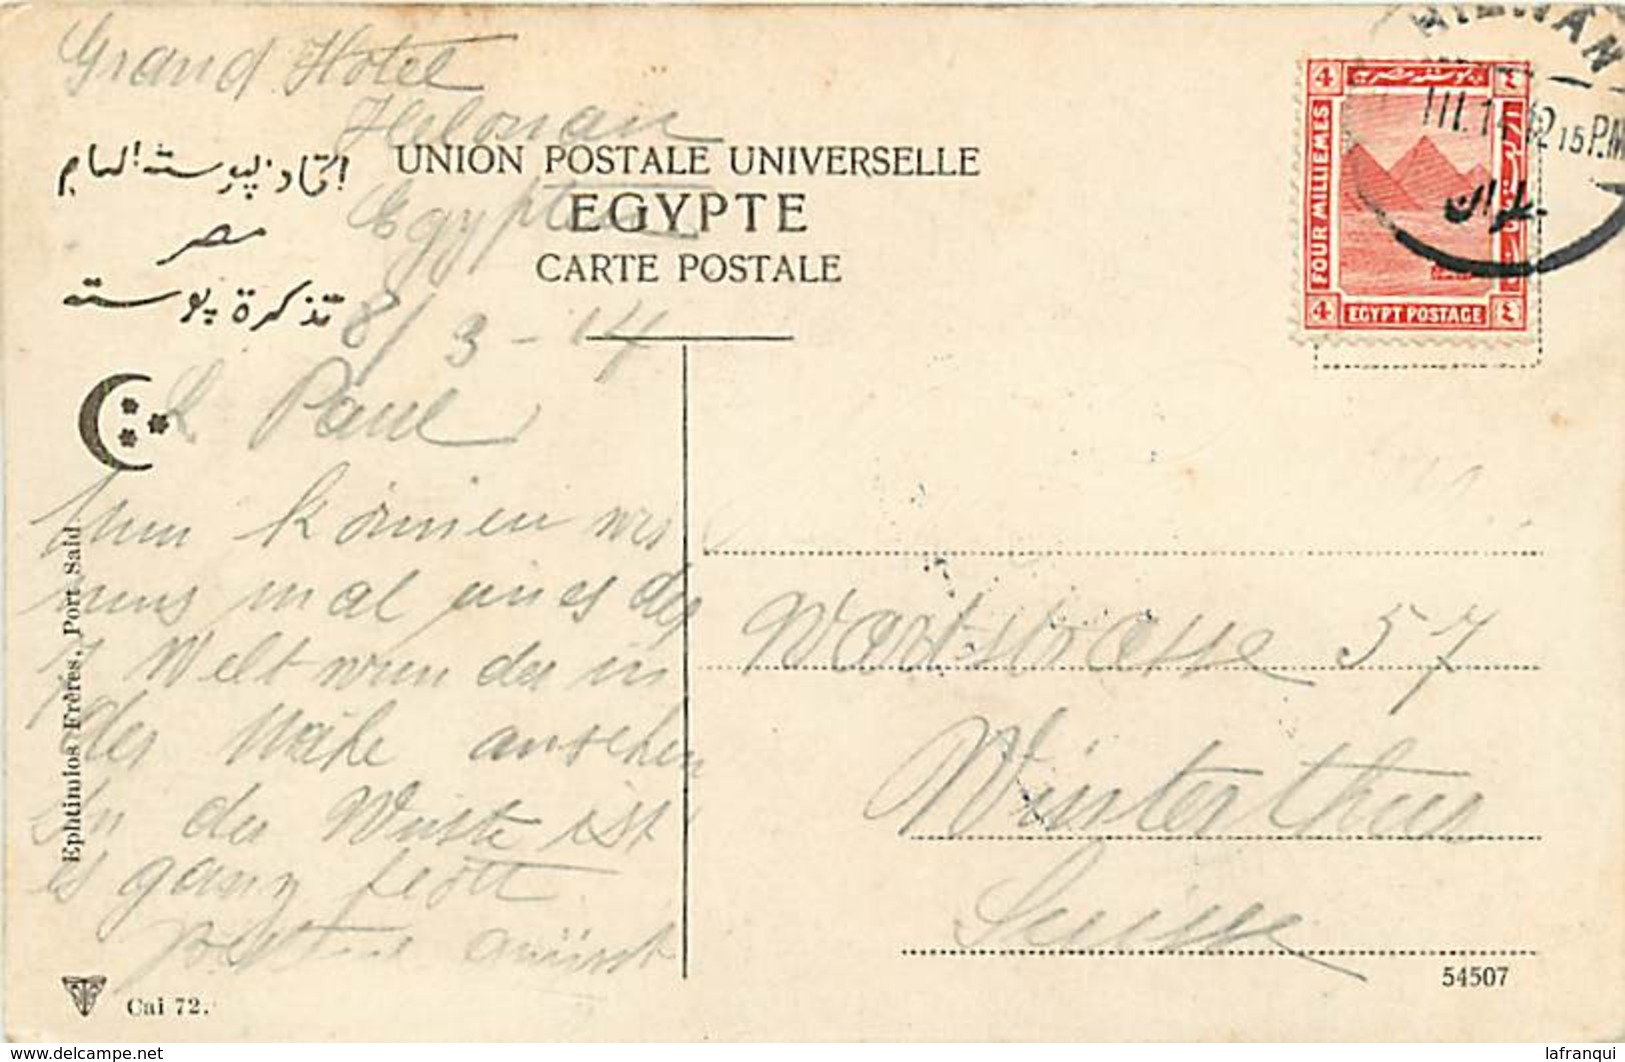 Grand Hotel
Helouan
Egypten
8/3-14
اتحاد پوسته العام
مصر
تذكرة پوسته
UNION POSTALE UNIVERSELLE
EGYPTE
CARTE POSTALE
L Paul
Nun können wir
uns mal eines der
7 Weltwunder in
der Nähe ansehen
In der Wüste ist
es ganz fein
grüsst
Ephtimios Frères, Port Said
Cai 72.
4 بوسته مصريه ٤
FOUR MILLIEMES
4 EGYPT POSTAGE ٤
III.14 12 15 P.M
حلوان
57
Winterthur
Suisse
54507
lafranqui
www.delcampe.net